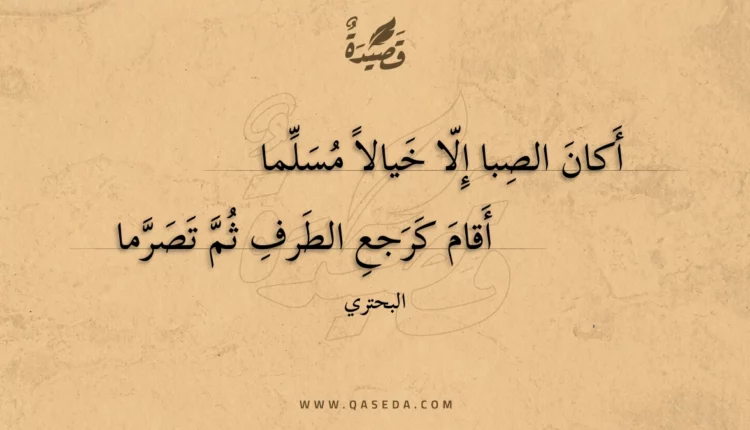 قَصِيْدَةٌ
أَكانَ الصِبا إِلّا خَيالاً مُسَلِّما
أَقامَ كَرَجعِ الطَرفِ ثُمَّ تَصَرَّما
البحتري
WWW.QASEDA.COM